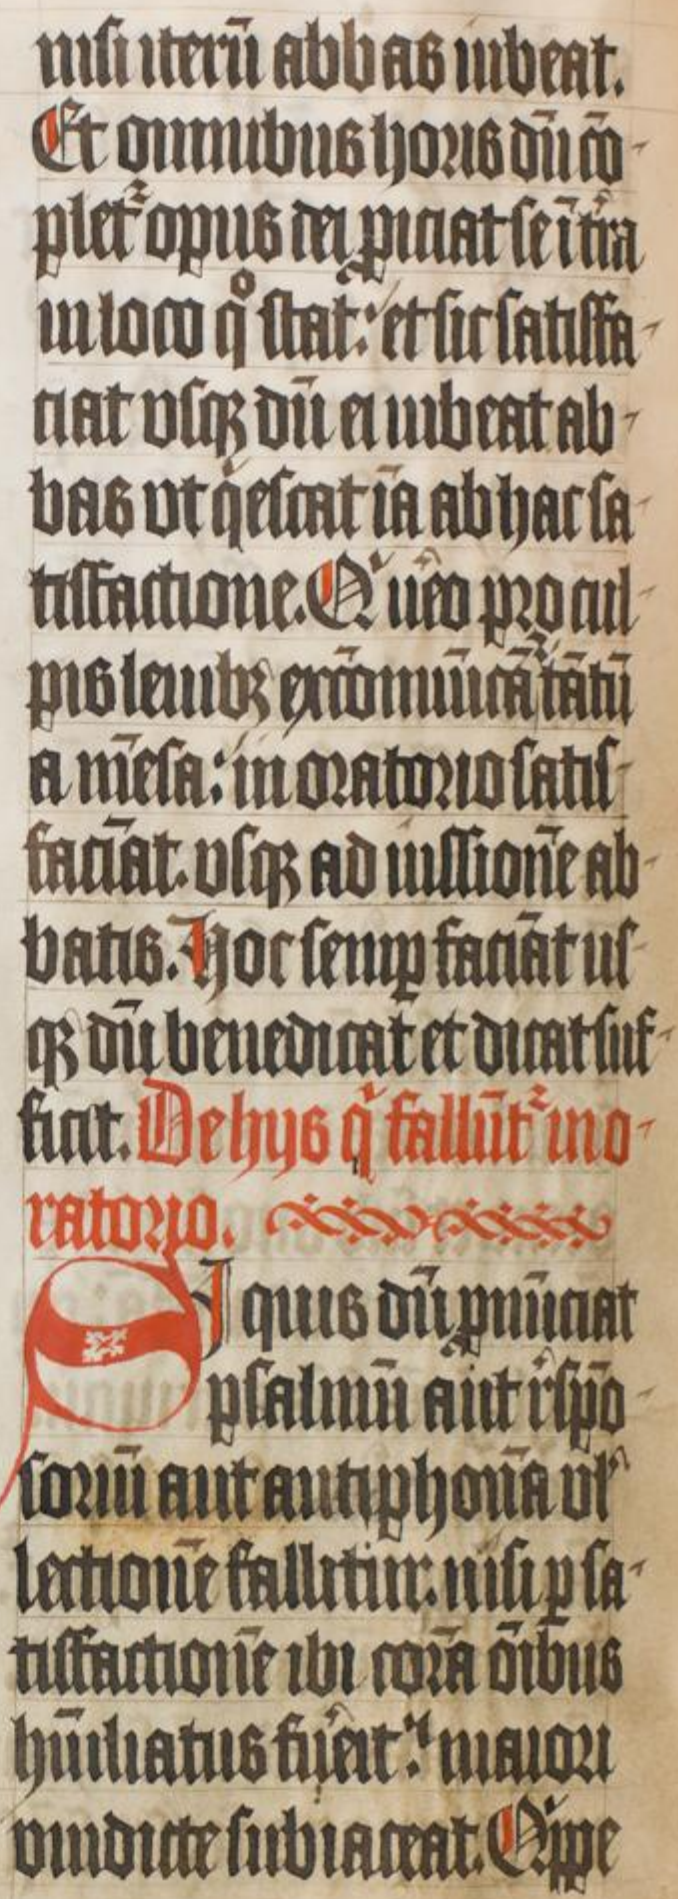 nisi iterū abbas iubeat.
Et omnibus horis dū cō-
plet᷑ opus dei p̱iciat se ī t̄ra
in loco qͦ stat: et sic satisfa-
ciat vsqꝫ dū ei iubeat ab-
bas vt qͥescat iā ab hac sa-
tisfactione. Qͥ u̅eo pro cul-
pis leuibꝫ excōmunicāt᷑ tātū
a mēsa: in oratorio satis-
faciāt. vsqꝫ ad iussionē ab-
batis. Hoc semꝑ faciāt us-
qꝫ dū benedicat et dicat suf-
ficit. De hijs qͥ fallūt᷑ in o-
ratorio.
SI quis dū ꝓnūciat
psalmū aut r̄spō-
soriū aut antiphonā vl̓
lectionē fallitur. nisi ꝑ sa-
tisfactionē ibi corā oībus
hūiliatus fu̓it: maiori
vindicte subiaceat. Qͥppe